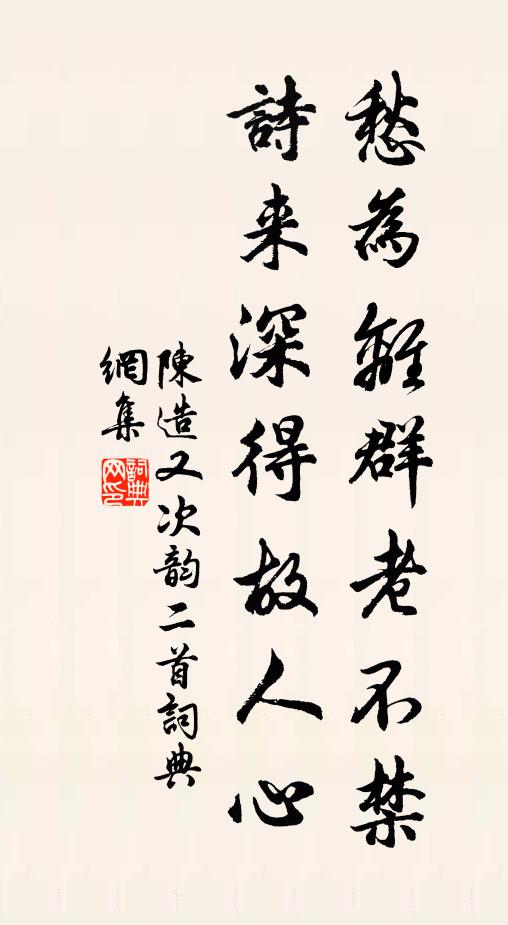 愁為離群老不禁
詩来深得故人心
陳造又次韵二首詞典
網集
詞典
网印